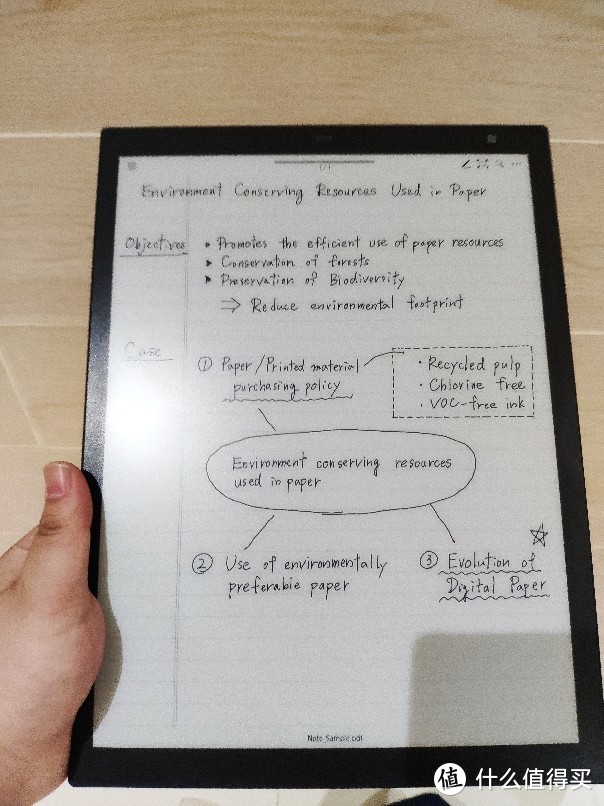 Environment Conserving Resources Used in Paper
Objectives
▸ Promotes the efficient use of paper resources
▸ Conservation of forests
▸ Preservation of Biodiversity
⇒ Reduce environmental footprint
Case
① Paper/Printed material
purchasing policy
· Recycled pulp
· Chlorine free
· VOC-free ink
Environment conserving resources
used in paper
② Use of environmentally
preferable paper
③ Evolution of
Digital Paper
Note_Sample.pdf
值 什么值得买